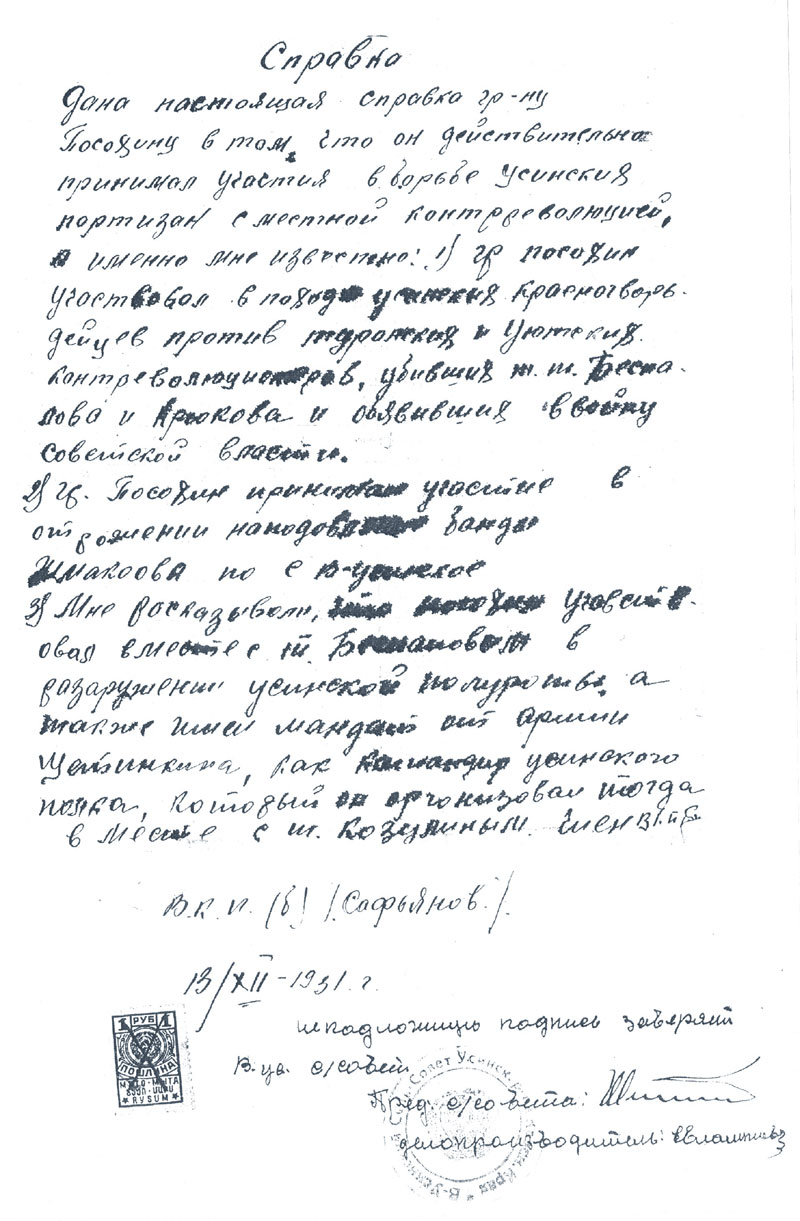 Справка
Дана настоящая справка гр-ну
Посохину в том, что он действительно
принимал участия в борьбе усинских
партизан с местной контрреволюцией,
а именно мне известно: 1) гр посохин
участвовал в походе усинских красногвар-
дейцев против туранских и Уютских
контреволюционеров, убивших т.т. Беспа-
лова и Крюкова и обявивших в войну
советской власти.
2) гр. Посохин принимал участие в
отражении
банды
по с в-усинское
3) Мне росказывали, что посохин участв-
овал вместе с т. Беспаловым в
разаружении усинской а
также имел мандат от армии
Щетинкина, как командир усинского
полка, который он организовал тогда
в месте с т. Козулиным. член
В.К.П. (б) /Сафьянов./
13/XII-1931 г.
подпись заверяет
В-ус. с/совет
Пред. с/совета:
делопроизводитель:
1 РУБ 1
ПОШЛИНА
RYSUM
Совет Усинск
Края * В-Усинск